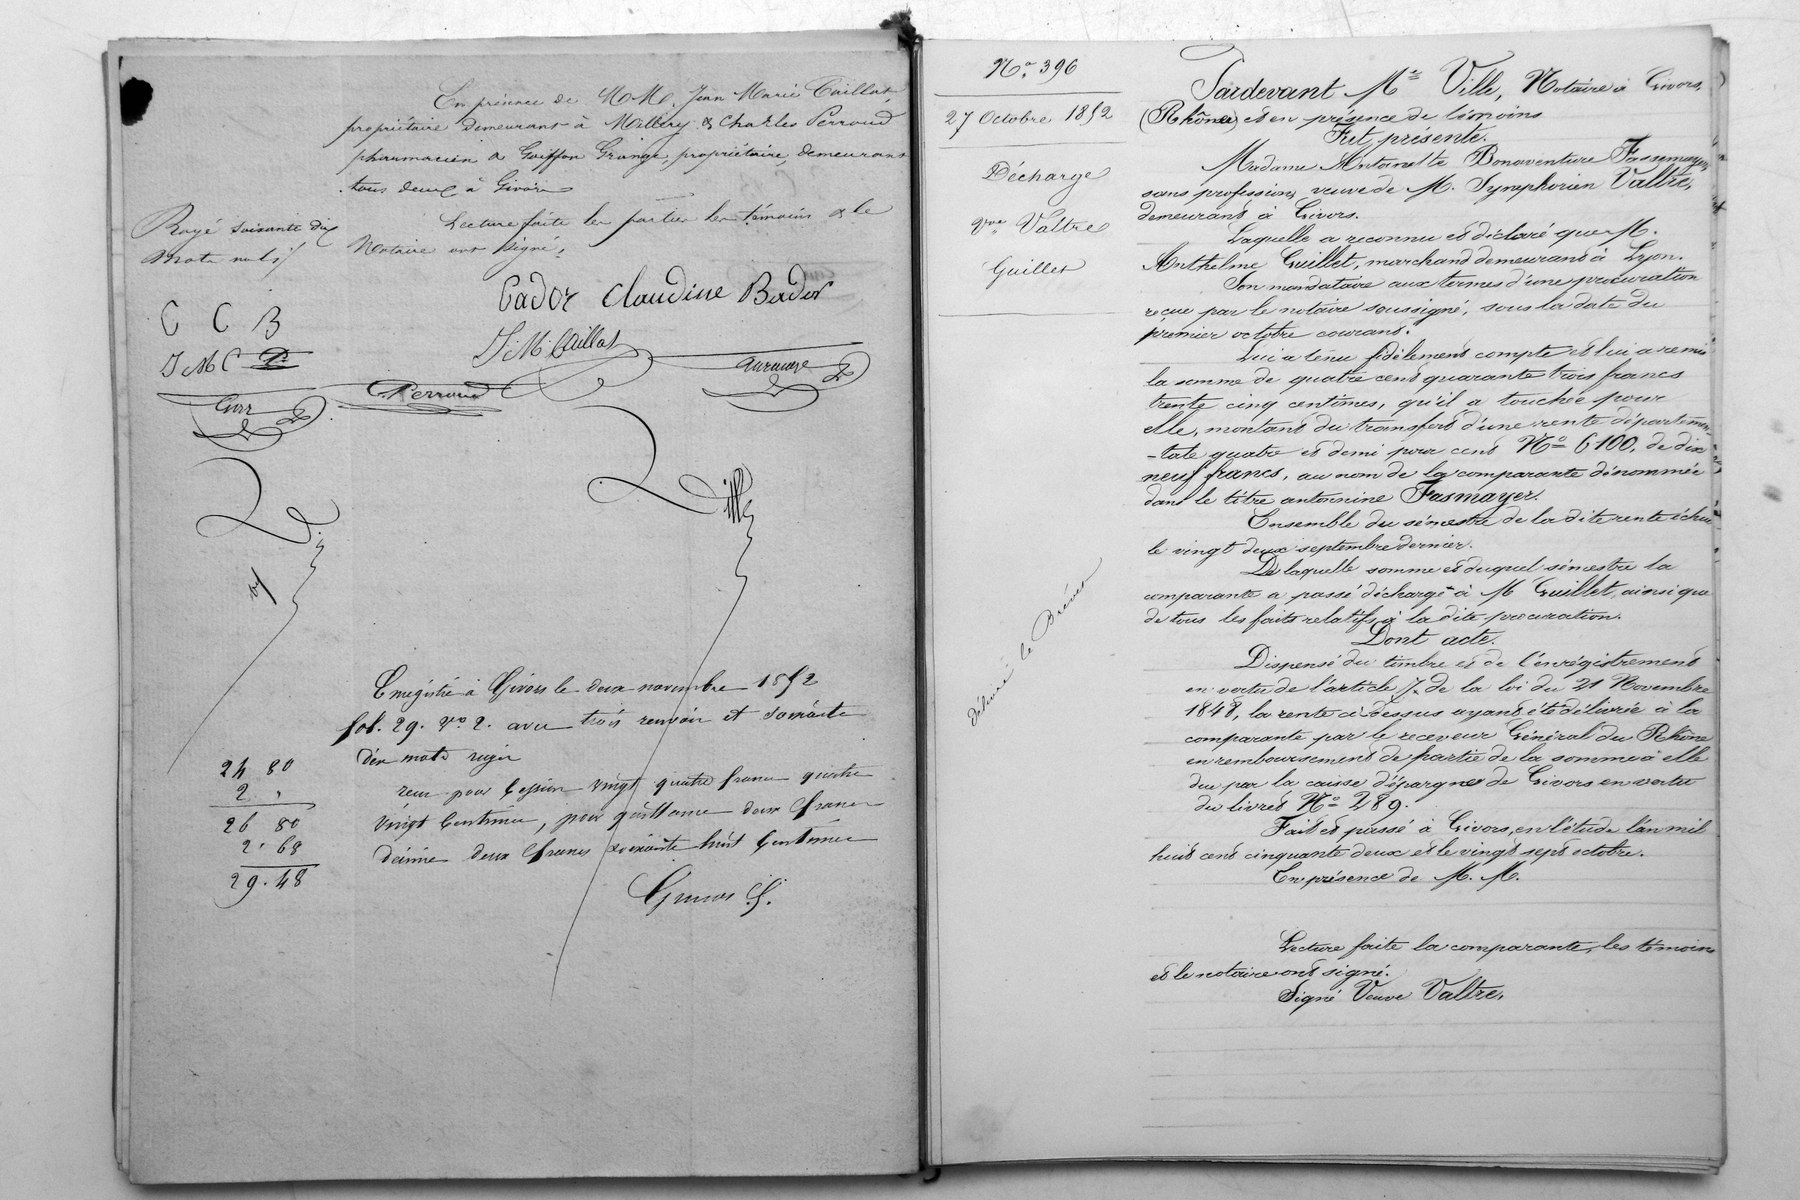 En présence de M.M. Jean Marie Caillat,
propriétaire demeurant à Millery & Charles Perroud
pharmacien à Goiffon Grange, propriétaire, demeurans
tous deux à Givors
Lecture faite les parties les témoins & le
Notaire ont signé.
Rayé soixante dix
mots nuls
Cador Claudine Bador
C C B
J M Caillat
J M C P.
C. Perroud
Ville
Enregistré à Givors le deux novembre 1852
fol. 29. vo 2. avec trois renvois et soixante
dix mots rayés
reçu pour Cession vingt quatre francs quatre
vingt Centimes, pour quittance deux francs
décime deux francs soixante huit Centimes
24 80
2 "
26 80
2. 68
29. 48
No. 396
27 Octobre 1852
Décharge
Vve Valtre
Guillet
délivré le Brévet
Pardevant Me Ville, Notaire à Givors,
(Rhône) et en présence de témoins
Fut présente.
Madame Antoinette Bonaventure Fassemayer,
sans profession, veuve de M. Symphorien Valtre,
demeurant à Givors.
Laquelle a reconnu et déclaré que M.
Anthelme Guillet, marchand demeurant à Lyon.
Son mandataire aux termes d'une procuration
reçue par le notaire soussigné, sous la date du
premier octobre courant.
Lui a tenu fidèlement compte et lui a remis
la somme de quatre cent quarante trois francs
trente cinq centimes, qu'il a touchée pour
elle, montant du transfert d'une rente départemen-
-tale quatre et demi pour cent No 6100, de dix
neuf francs, au nom de la comparante dénommée
dans le titre antonnine Fasmayer.
Ensemble du sémestre de la dite rente échue
le vingt deux septembre dernier.
De laquelle somme et duquel sémestre la
comparante a passé décharge à M Guillet, ainsi que
de tous les faits relatifs à la dite procuration.
Dont acte.
Dispensé du timbre et de l'enrégistrement
en vertu de l'article 7. de la loi du 21 Novembre
1848, la rente ci-dessus ayant été délivrée à la
comparante par le receveur Général du Rhône
en remboursement de partie de la somme à elle
due par la caisse d'épargne de Givors en vertu
du livret No 289.
Fait et passé à Givors, en l'étude l'an mil
huit cent cinquante deux et le vingt sept octobre.
En présence de M. M.
Lecture faite la comparante, les témoins
et le notaire ont signé.
Signé Veuve Valtre.